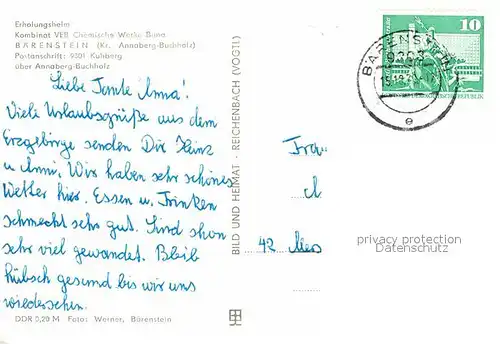 Erholungsheim
Kombinat VEB Chemische Werke Buna
BÄRENSTEIN (Kr. Annaberg-Buchholz)
Postanschrift: 9301 Kühberg
über Annaberg-Buchholz
Liebe Tante Anna!
Viele Urlaubsgrüße aus dem
Erzgebirge senden Dir Heinz
u. Anni. Wir haben sehr schönes
Wetter hier. Essen u. Trinken
schmeckt sehr gut. Sind schon
sehr viel gewandert. Bleib
hübsch gesund bis wir uns
wiedersehen.
DDR 0,20 M Foto: Werner, Bärenstein
BILD UND HEIMAT · REICHENBACH (VOGTL)
10
BÄRENSTEIN
e
Frau
42 Mers
privacy protection
Datenschutz